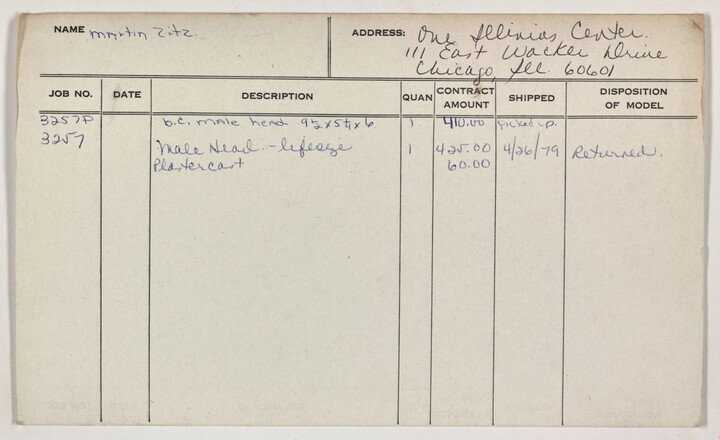 NAME Martin Zitz
ADDRESS: One Illinois Center.
111 East Wacker Drive
Chicago, Ill. 60601
JOB NO. DATE DESCRIPTION QUAN CONTRACT AMOUNT SHIPPED DISPOSITION OF MODEL
3257P b.c. male head 9½ x 5¼ x 6 1 410.00 picked up.
3257 Male Head - lifesize 1 425.00 4/26/79 Returned.
Plaster cast 60.00